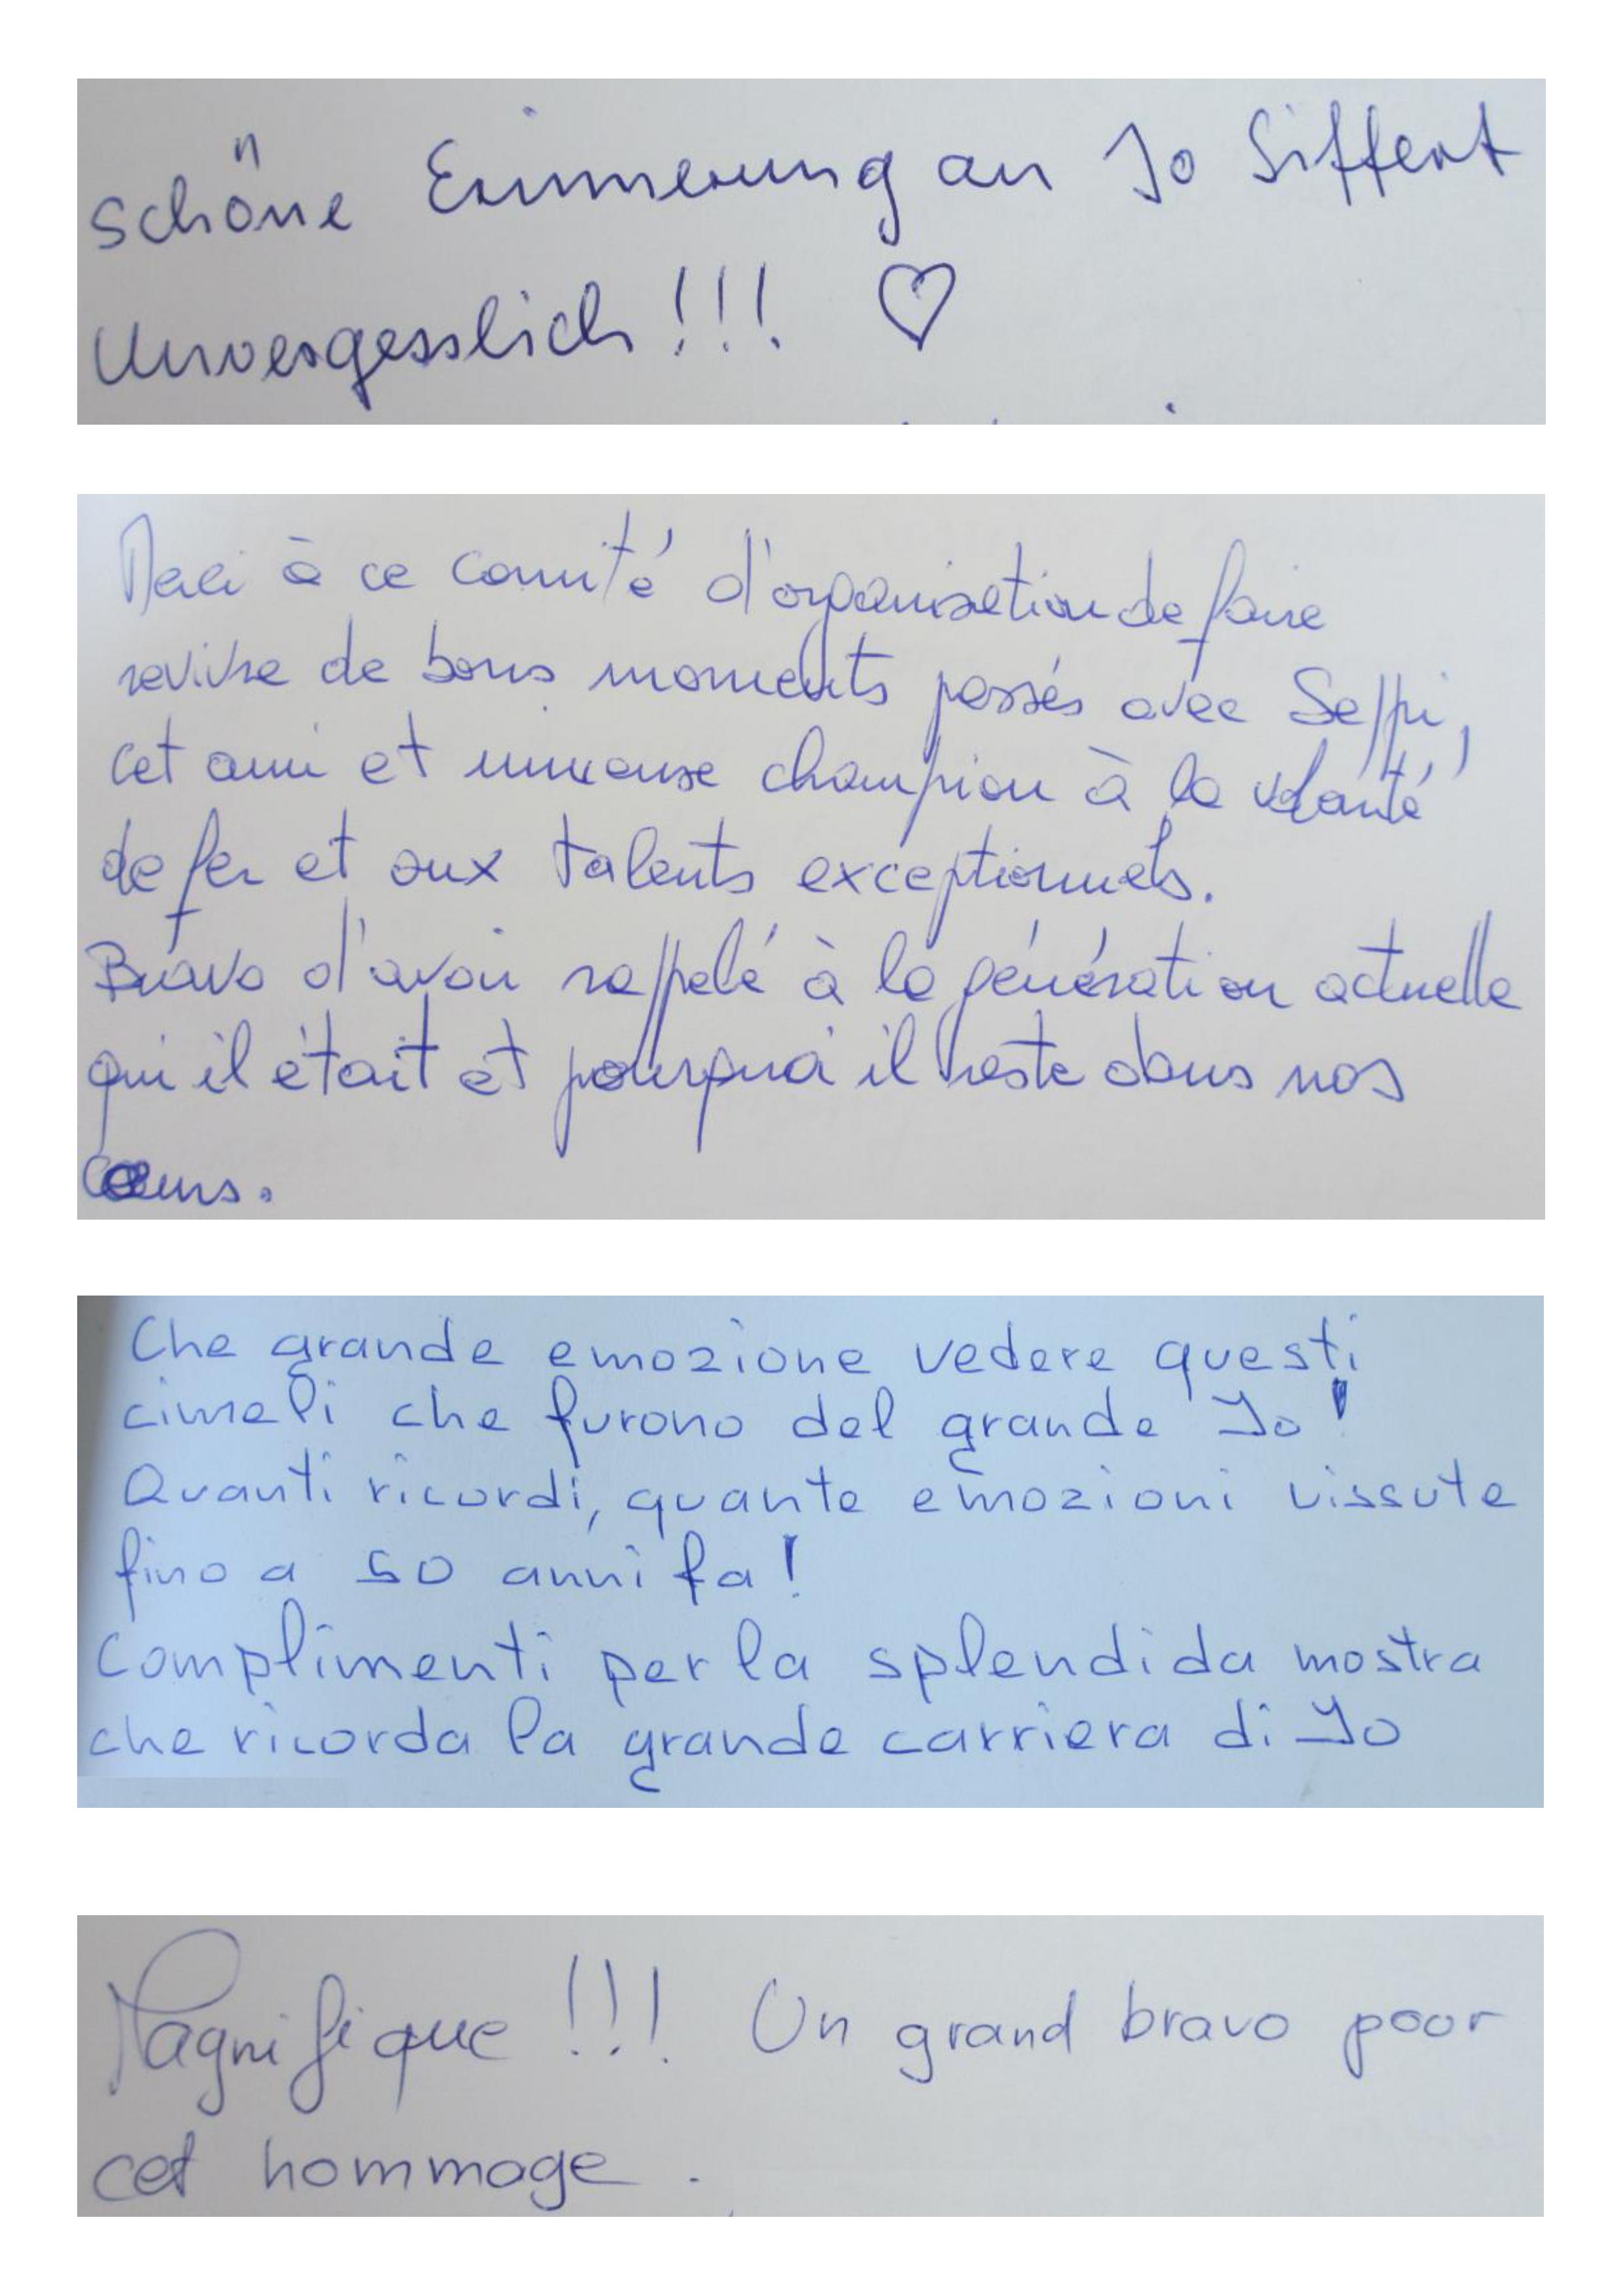 schöne Erinnerung an Jo Siffert
Unvergesslich !!! ♡
Merci à ce comité d'organisation de faire
revivre de bons moments passés avec Seppi,
cet ami et immense champion à la volonté
de fer et aux talents exceptionnels.
Bravo d'avoir rappelé à la génération actuelle
qui il était et pourquoi il reste dans nos
cœurs.
Che grande emozione vedere questi
cimeli che furono del grande Jo!
Quanti ricordi, quante emozioni vissute
fino a 50 anni fa!
Complimenti per la splendida mostra
che ricorda la grande carriera di Jo
Magnifique !!! Un grand bravo pour
cet hommage.